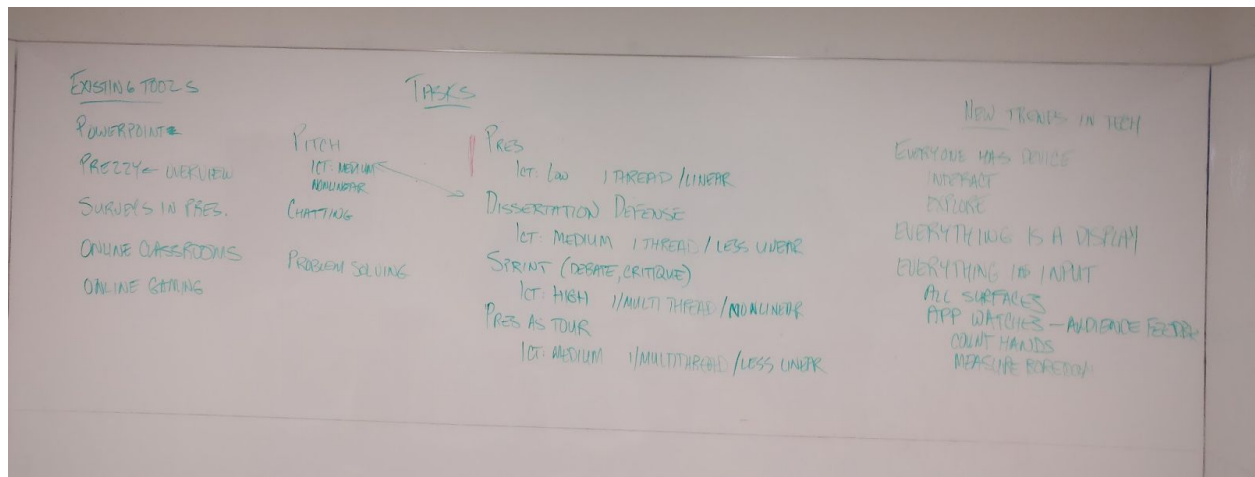 EXISTING TOOLS
POWERPOINT
PREZZY ← OVERVIEW
SURVEYS IN PRES.
ONLINE CLASSROOMS
ONLINE GAMING
TASKS
PITCH
ICT: MEDIUM
NONLINEAR
CHATTING
PROBLEM SOLVING
PRES
ICT: LOW 1 THREAD / LINEAR
DISSERTATION DEFENSE
ICT: MEDIUM 1 THREAD / LESS LINEAR
SPRINT (DEBATE, CRITIQUE)
ICT: HIGH 1/MULTI THREAD / NONLINEAR
PRES AS TOUR
ICT: MEDIUM 1/MULTITHREAD / LESS LINEAR
NEW TRENDS IN TECH
EVERYONE HAS DEVICE
INTERACT
EXPLORE
EVERYTHING IS A DISPLAY
EVERYTHING IS INPUT
ALL SURFACES
APP WATCHES – AUDIENCE
COUNT HANDS
MEASURE BOREDOM